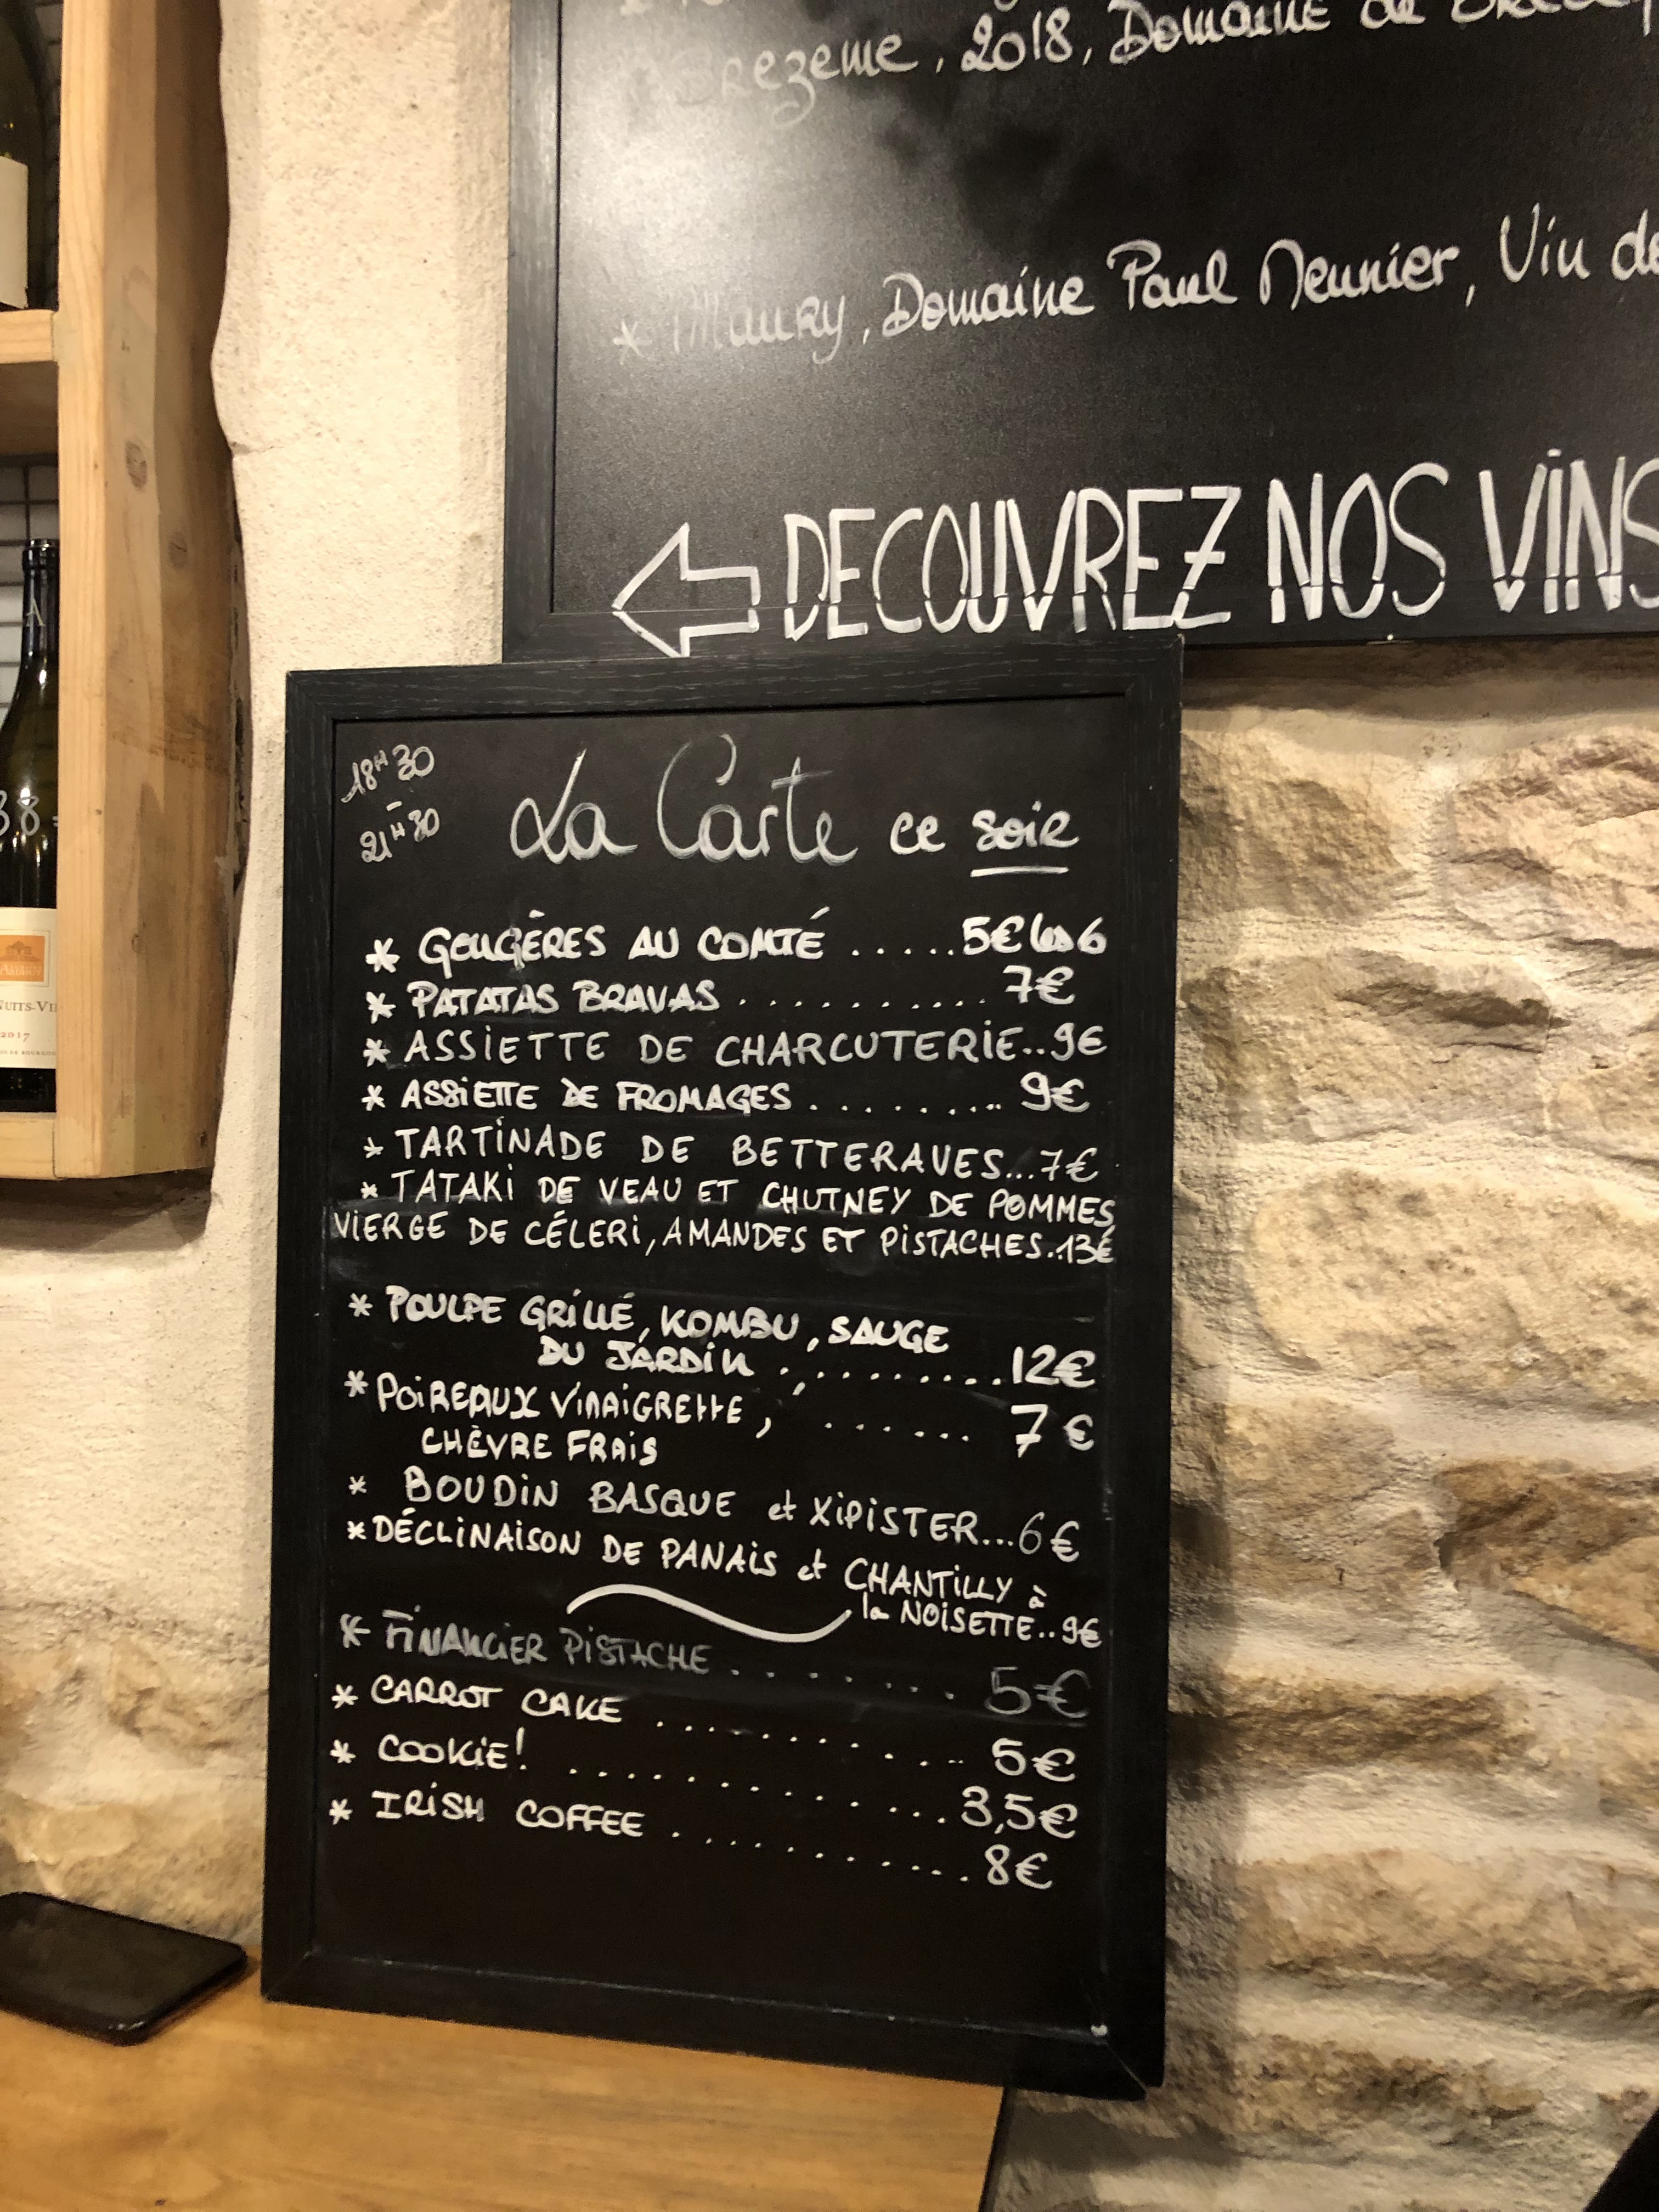 Brezeme, 2018, Domaine de
* Maury, Domaine Paul Meunier, Vin de
DECOUVREZ NOS VINS
18H30
-
21H30
La Carte ce soir
* GOUGÈRES AU COMTÉ .....5€ les 6
* PATATAS BRAVAS .......... 7€
* ASSIETTE DE CHARCUTERIE..9€
* ASSIETTE DE FROMAGES ......... 9€
* TARTINADE DE BETTERAVES...7€
* TATAKI DE VEAU ET CHUTNEY DE POMMES,
VIERGE DE CÉLERI, AMANDES ET PISTACHES..13€
* POULPE GRILLÉ, KOMBU, SAUGE
DU JARDIN .,........12€
* POIREAUX VINAIGRETTE, ...... 7€
CHÈVRE FRAIS
* BOUDIN BASQUE et XIPISTER...6€
* DÉCLINAISON DE PANAIS et CHANTILLY à
la NOISETTE..9€
* FINANCIER PISTACHE ........ 5€
* CARROT CAKE .......... 5€
* COOKIE! ............. 3,5€
* IRISH COFFEE ........... 8€
38
A
NUITS-
2017